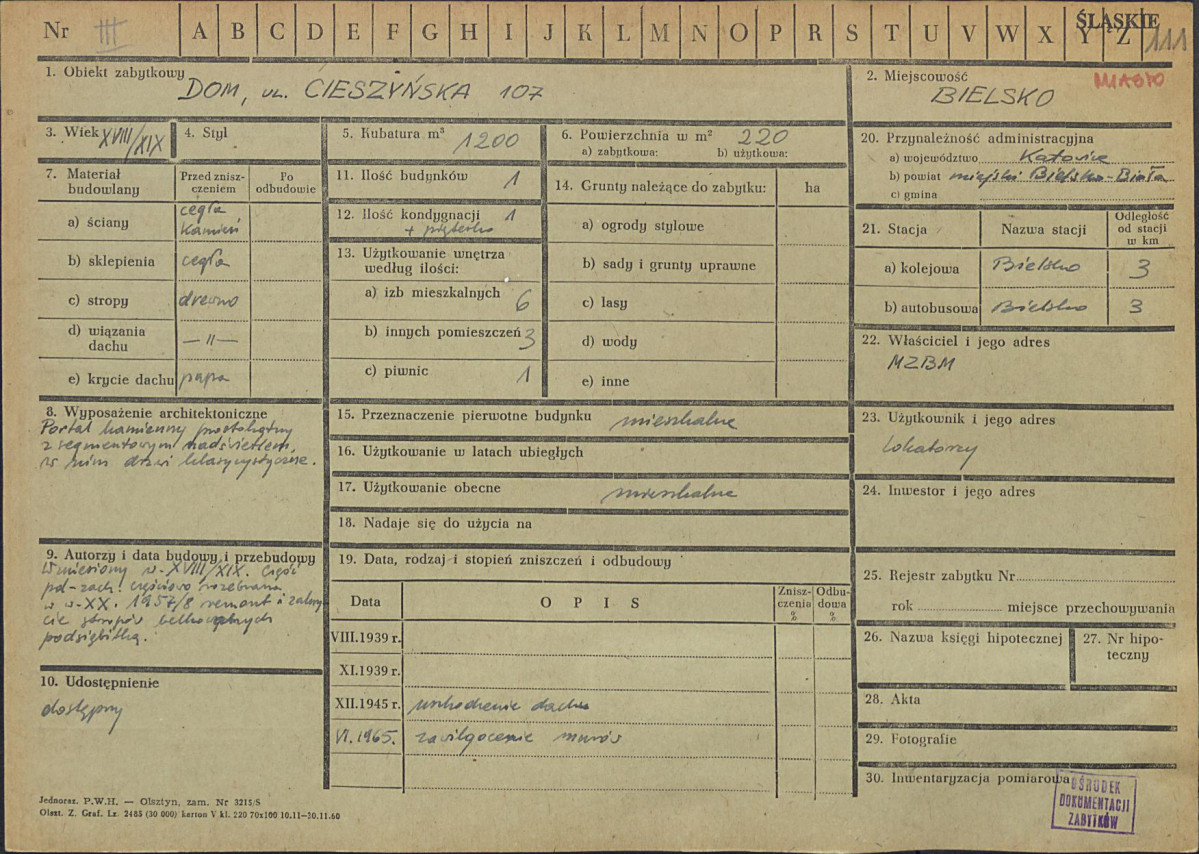 Nr III A B C D E F G H I J K L M N O P R S T U V W X Y Z
ŚLĄSKIE
111
1. Obiekt zabytkowy
DOM, UL. CIESZYŃSKA 107
2. Miejscowość
MIASTO
BIELSKO
3. Wiek XVIII/XIX
4. Styl
5. Kubatura m³ 1200
6. Powierzchnia w m² 220
a) zabytkowa: b) użytkowa:
7. Materiał budowlany
Przed zniszczeniem
Po odbudowie
a) ściany cegła kamień
b) sklepienia cegła
c) stropy drewno
d) wiązania dachu — 〃 —
e) krycie dachu papa
11. Ilość budynków 1
12. Ilość kondygnacji 1
+ pięterko
13. Użytkowanie wnętrza
według ilości:
a) izb mieszkalnych 6
b) innych pomieszczeń 3
c) piwnic 1
14. Grunty należące do zabytku: ha
a) ogrody stylowe
b) sady i grunty uprawne
c) lasy
d) wody
e) inne
20. Przynależność administracyjna
a) województwo Katowice
b) powiat miejski Bielsko-Biała
c) gmina
21. Stacja
Nazwa stacji
Odległość od stacji w km
a) kolejowa Bielsko 3
b) autobusowa Bielsko 3
22. Właściciel i jego adres
MZBM
23. Użytkownik i jego adres
lokatorzy
24. Inwestor i jego adres
8. Wyposażenie architektoniczne
Portal kamienny prostokątny
z segmentowym nadświetlem,
w nim drzwi klasycystyczne.
15. Przeznaczenie pierwotne budynku mieszkalne
16. Użytkowanie w latach ubiegłych
17. Użytkowanie obecne mieszkalne
18. Nadaje się do użycia na
9. Autorzy i data budowy i przebudowy
Wzniesiony w. XVIII/XIX. Część
pd-zach. częściowo rozebrana
w w. XX. 1957/8 remont i założ
cie stropów belkowanych
podsiębitką.
10. Udostępnienie
dostępny
19. Data, rodzaj i stopień zniszczeń i odbudowy
Data
O P I S
Zniszczenia %
Odbudowa %
VIII.1939 r.
XI.1939 r.
XII.1945 r. uszkodzenie dachu
VI.1965. zawilgocenie murów
25. Rejestr zabytku Nr
rok miejsce przechowywania
26. Nazwa księgi hipotecznej
27. Nr hipoteczny
28. Akta
29. Fotografie
30. Inwentaryzacja pomiarowa
OŚRODEK
DOKUMENTACJI
ZABYTKÓW
Jednoraz. P.W.H. — Olsztyn, zam. Nr 3215/S
Olszt. Z. Graf. Lz. 2485 (30 000) karton V kl. 220 70x100 10.11—30.11.60